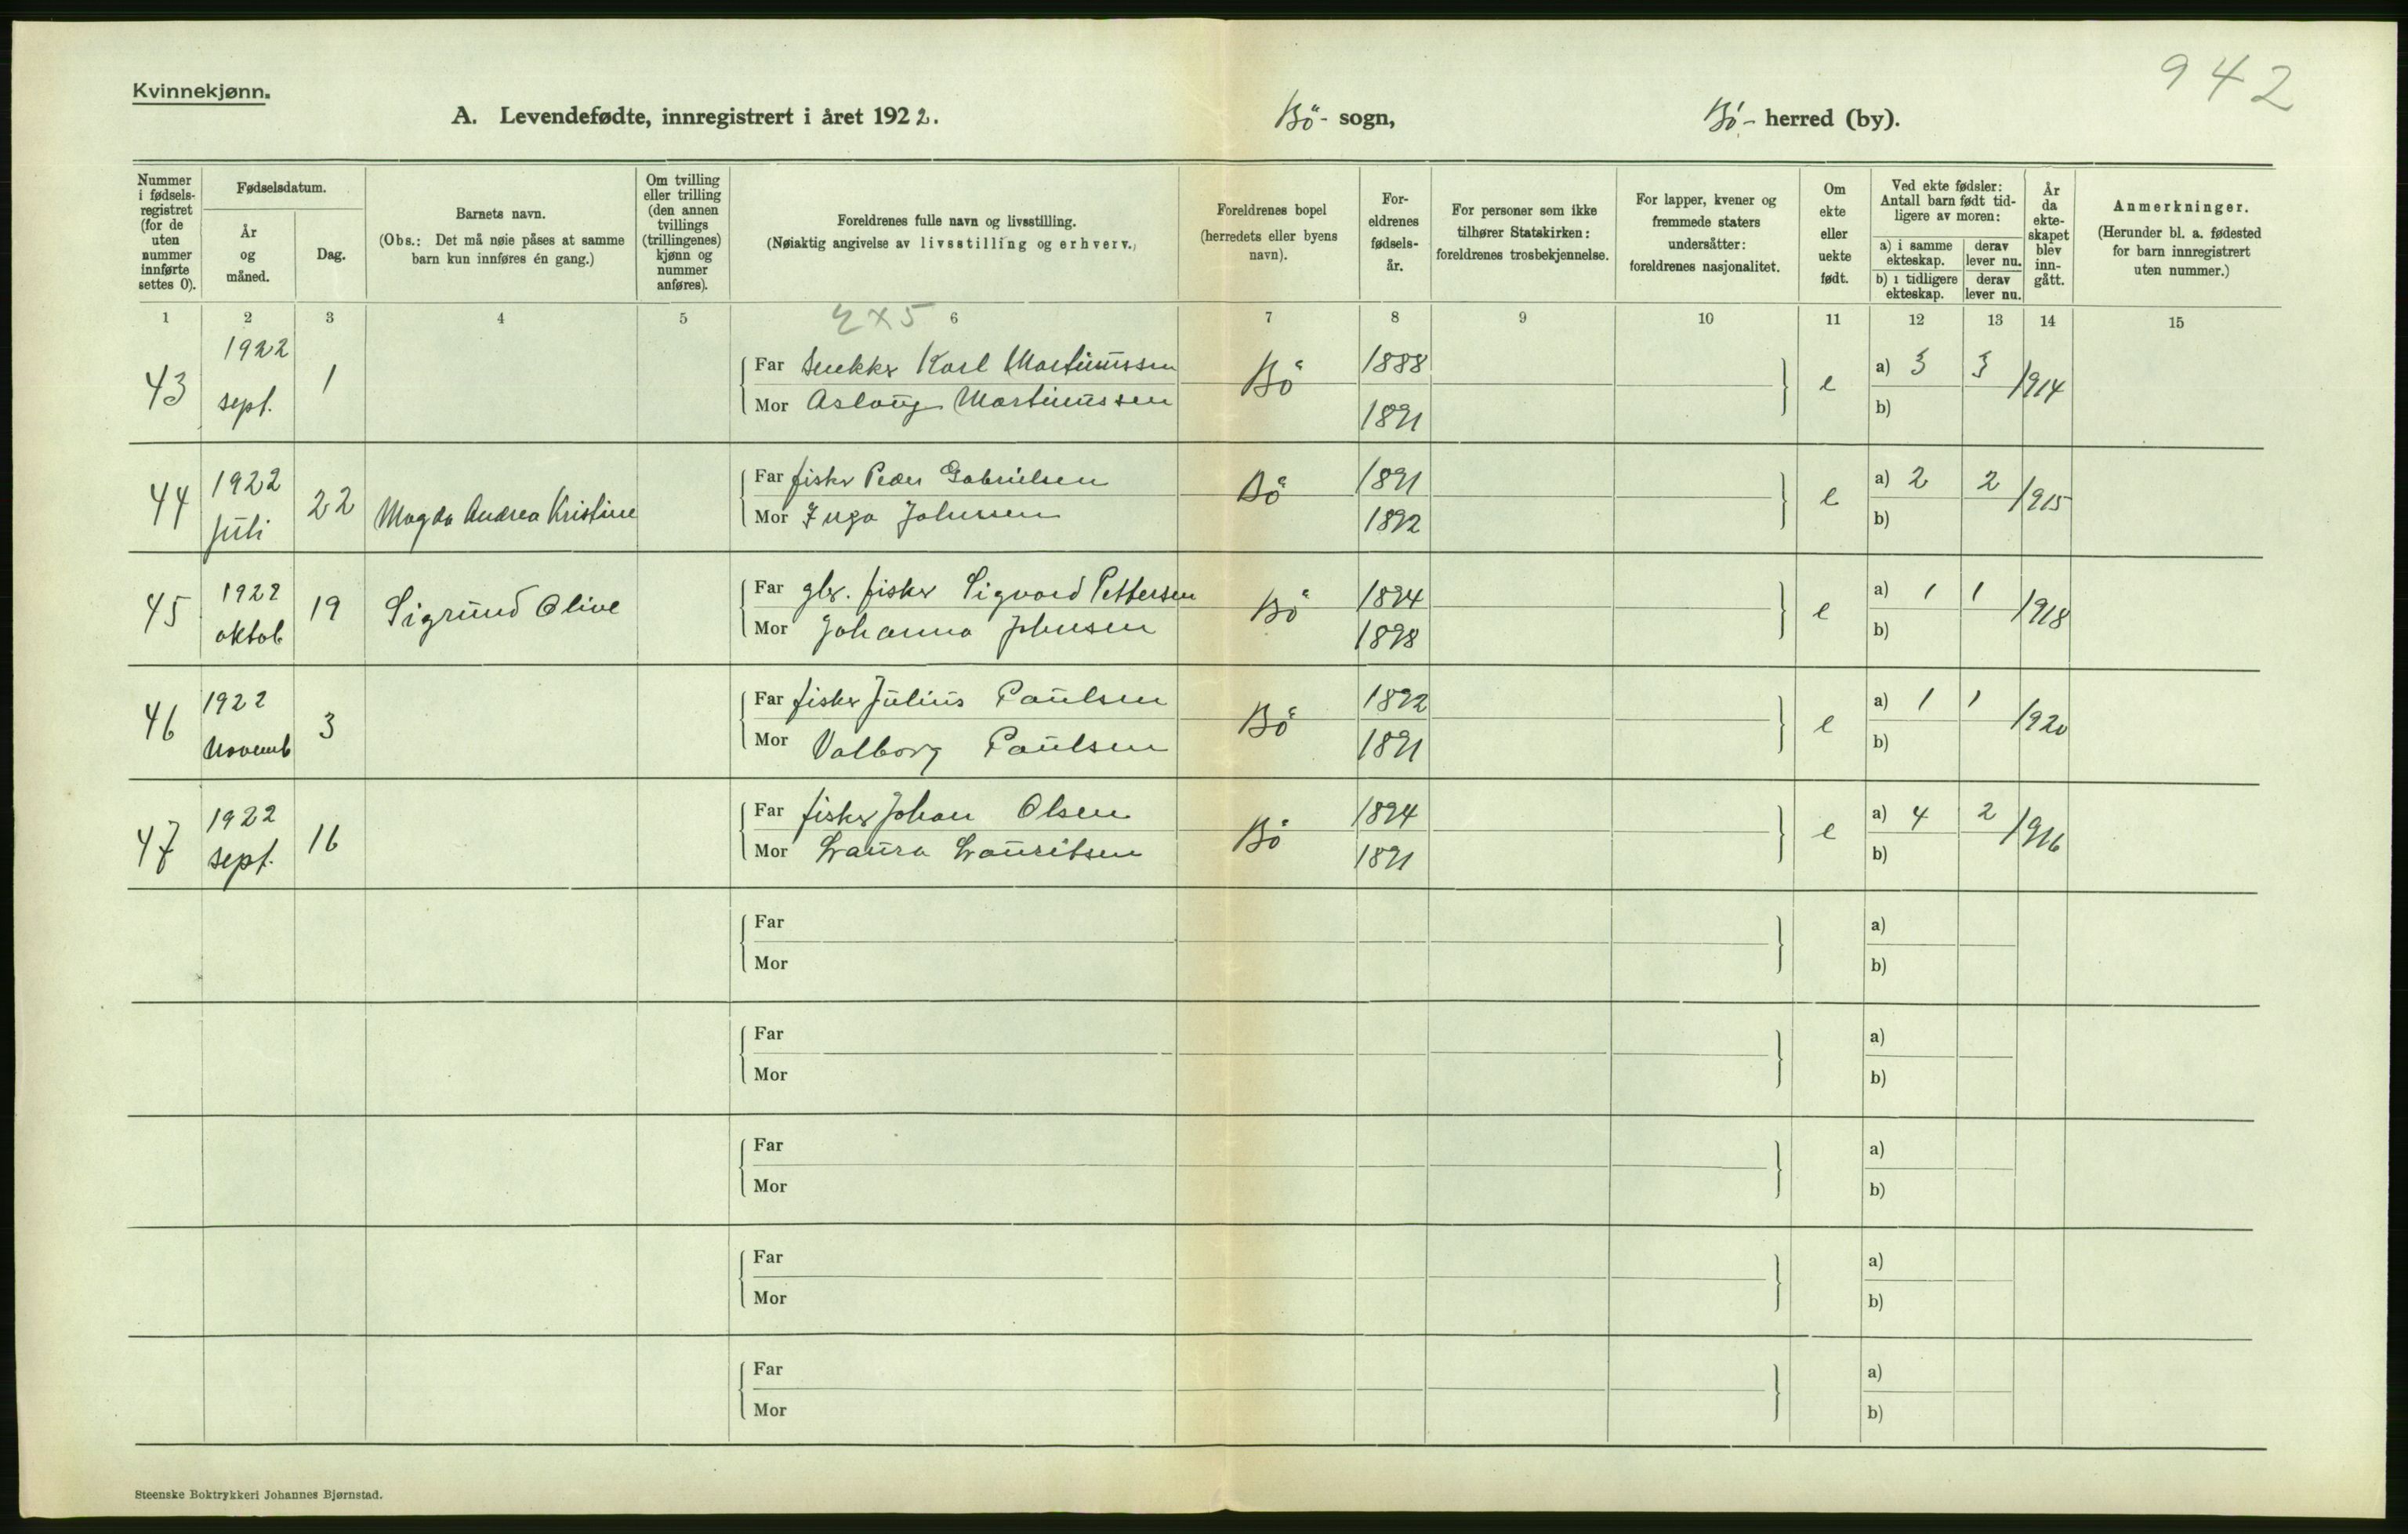 942
Kvinnekjønn.
A. Levendefødte, innregistrert i året 1922. Bö- sogn, Bö- herred (by).
Nummer i fødsels-registret (for de uten nummer innførte settes 0).
Fødselsdatum.
År og måned.
Dag.
Barnets navn.
(Obs.: Det må nøie påses at samme barn kun innføres én gang.)
Om tvilling eller trilling (den annen tvillings (trillingenes) kjønn og nummer anføres).
Foreldrenes fulle navn og livsstilling.
(Nøiaktig angivelse av livsstilling og erhverv.)
Foreldrenes bopel (herredets eller byens navn).
For-eldrenes fødsels-år.
For personer som ikke tilhører Statskirken: foreldrenes trosbekjennelse.
For lapper, kvener og fremmede staters undersåtter: foreldrenes nasjonalitet.
Om ekte eller uekte født.
Ved ekte fødsler: Antall barn født tid-ligere av moren:
a) i samme ekteskap.
derav lever nu.
b) i tidligere ekteskap.
derav lever nu.
År da ekte-skapet blev inn-gått.
Anmerkninger.
(Herunder bl. a. fødested for barn innregistrert uten nummer.)
1 2 3 4 5 6 7 8 9 10 11 12 13 14 15
43 1922 sept. 1
Far Snekker Karl Martinussen Bö 1888 e a) 3 3 1914
Mor Aslaug Martinussen 1891 b)
44 1922 Juli 22 Magda Andrea Kristine
Far fisker Peder Gabrielsen Bö 1891 e a) 2 2 1915
Mor Inga Johnsen 1892 b)
45 1922 oktob 19 Sigrund Olive
Far gbr. fisker Sigvard Pettersen Bö 1894 e a) 1 1 1918
Mor Johanna Johnsen 1898 b)
46 1922 Novemb 3
Far fisker Julius Paulsen Bö 1892 e a) 1 1 1920
Mor Valborg Paulsen 1891 b)
47 1922 sept. 16
Far fisker Johan Olsen Bö 1894 e a) 4 2 1916
Mor Laura Lauritsen 1891 b)
Far a)
Mor b)
Far a)
Mor b)
Far a)
Mor b)
Far a)
Mor b)
Far a)
Mor b)
Steenske Boktrykkeri Johannes Bjørnstad.